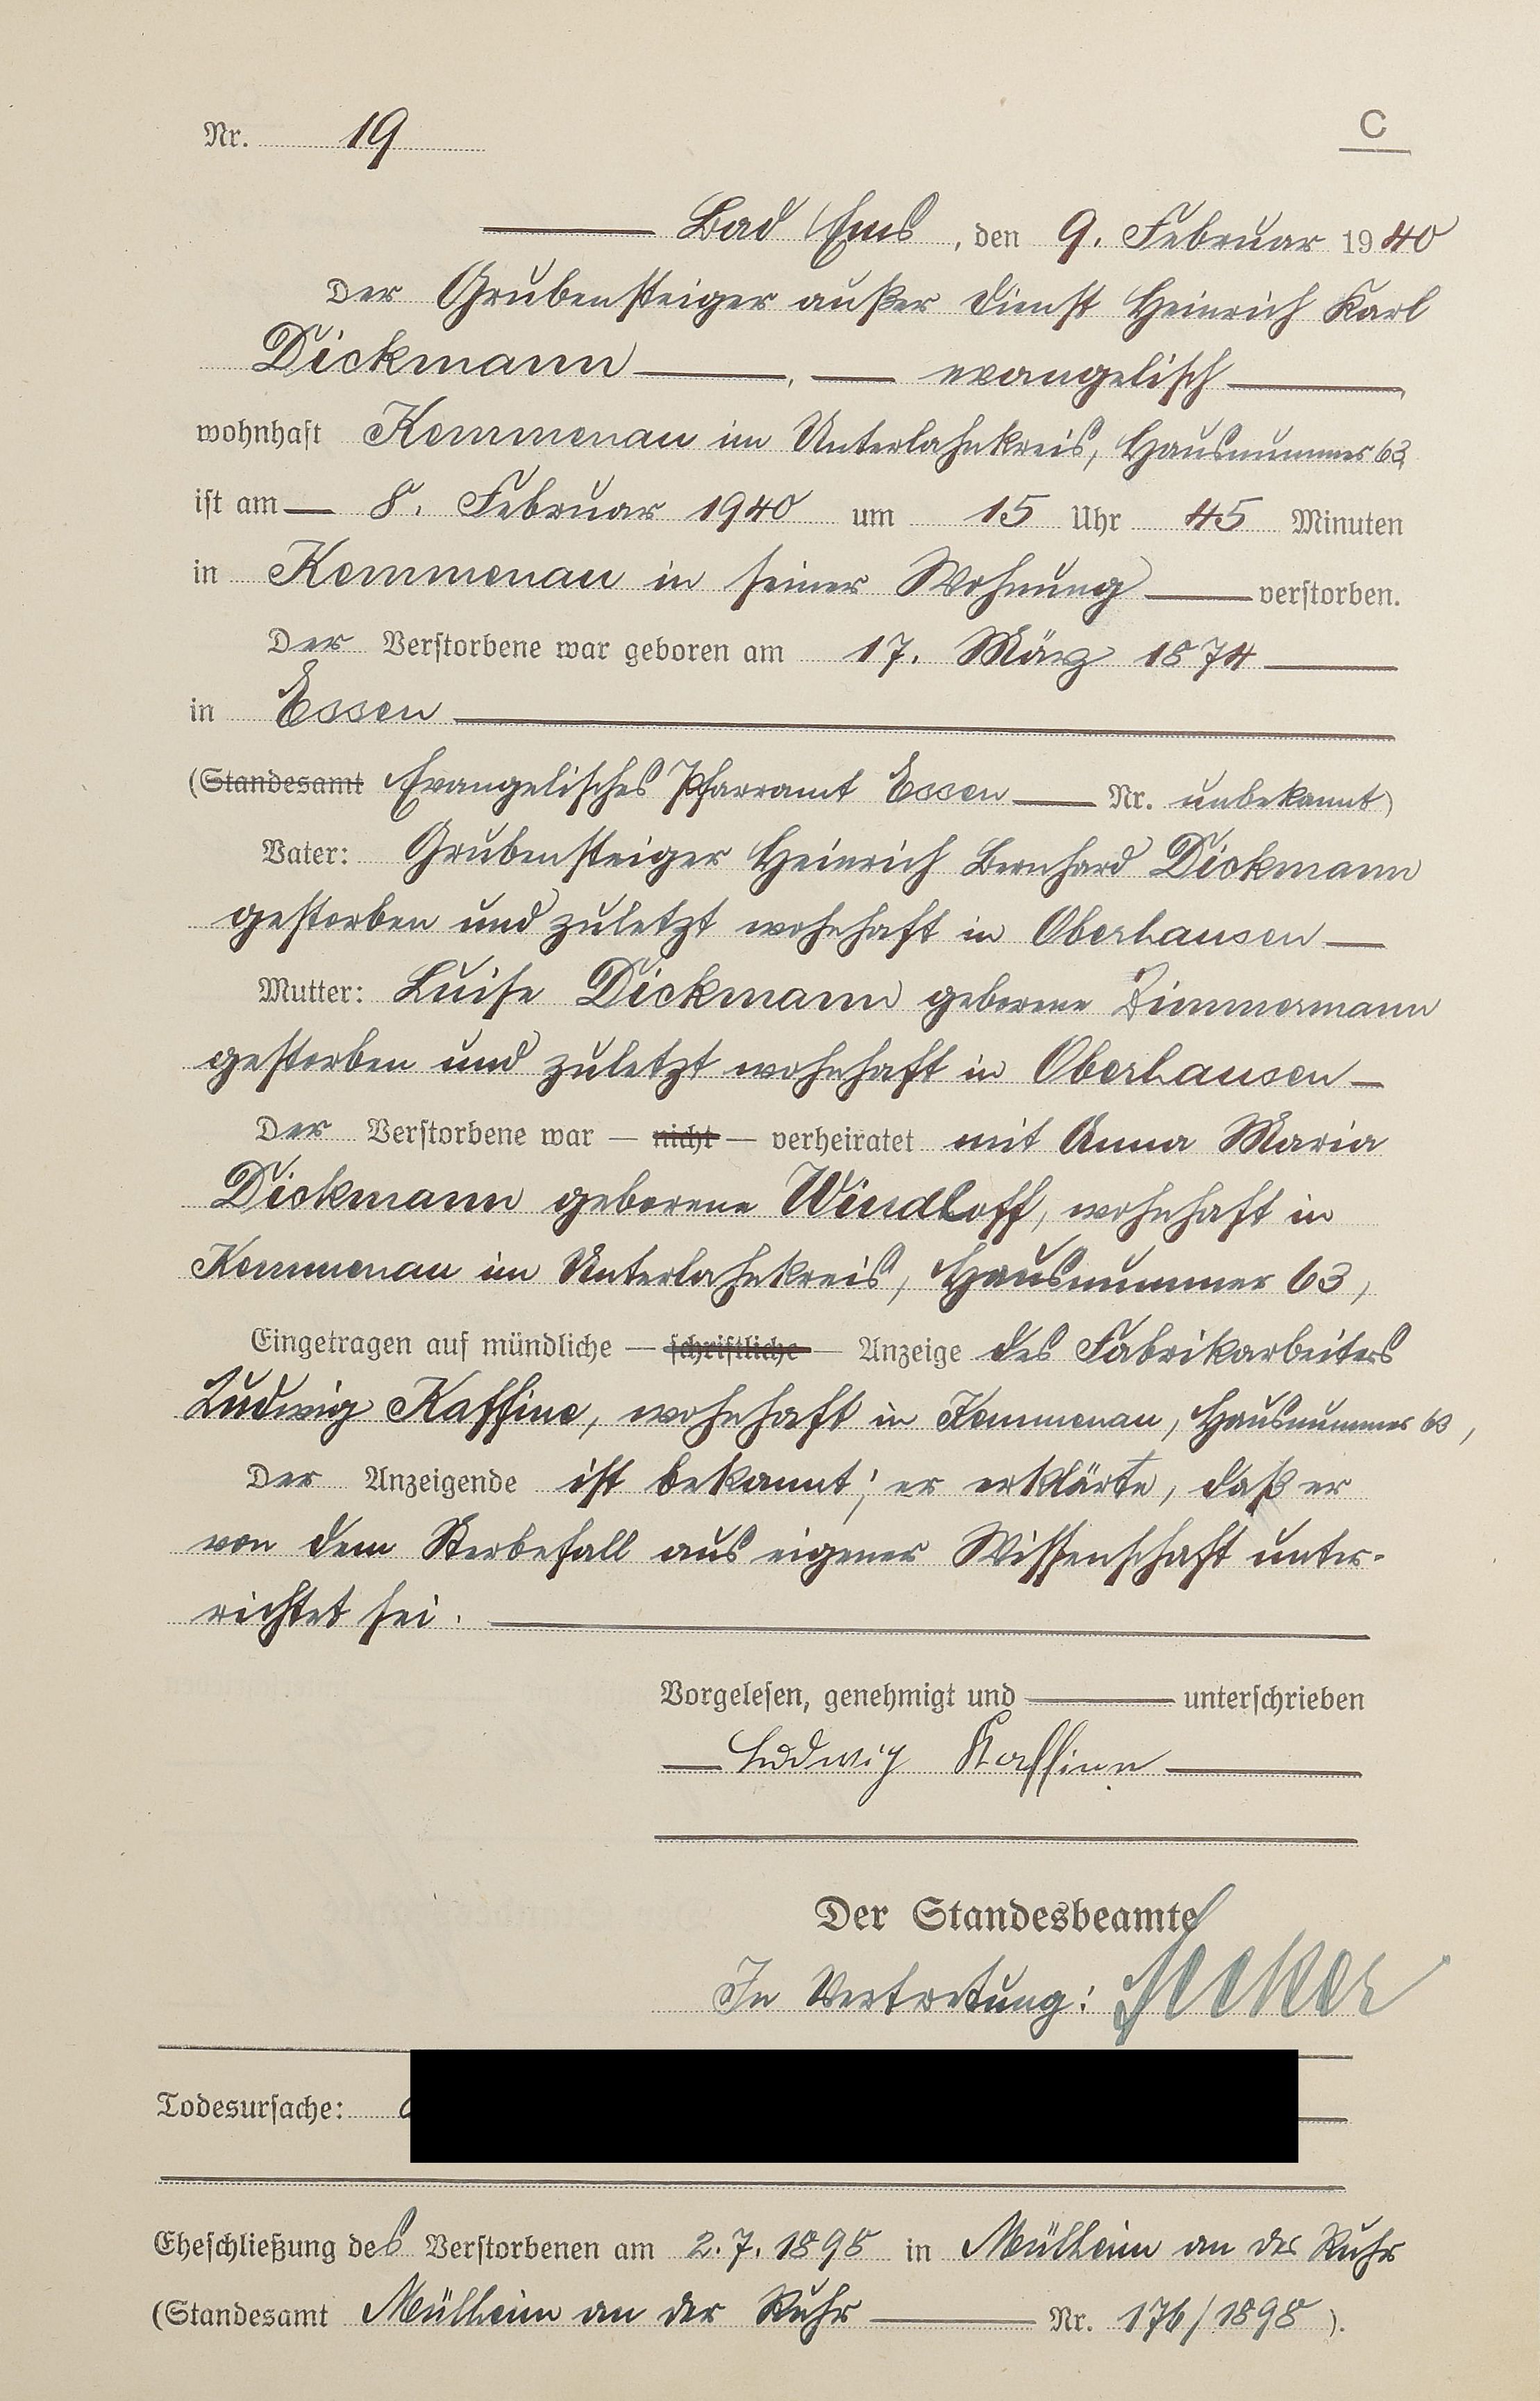 Nr. 19
C
Bad Ems, den 9. Februar 1940
Der Grubensteiger außer Dienst Heinrich Karl
Dickmann, evangelisch,
wohnhaft Kemmenau im Unterlahnkreis, Hausnummer 63,
ist am 8. Februar 1940 um 15 Uhr 45 Minuten
in Kemmenau in seiner Wohnung verstorben.
Der Verstorbene war geboren am 17. März 1874
in Essen
(Standesamt Evangelisches Pfarramt Essen Nr. unbekannt)
Vater: Grubensteiger Heinrich Bernhard Dickmann
gestorben und zuletzt wohnhaft in Oberhausen
Mutter: Luise Dickmann geborene Zimmermann
gestorben und zuletzt wohnhaft in Oberhausen
Der Verstorbene war — nicht — verheiratet mit Anna Maria
Dickmann geborene Windloff, wohnhaft in
Kemmenau im Unterlahnkreis, Hausnummer 63,
Eingetragen auf mündliche — schriftliche — Anzeige des Fabrikarbeiters
Ludwig Kaffine, wohnhaft in Kemmenau, Hausnummer 63,
Der Anzeigende ist bekannt; er erklärte, daß er
von dem Sterbefall aus eigener Wissenschaft unter-
richtet sei.
Vorgelesen, genehmigt und unterschrieben
Ludwig Kaffine
Der Standesbeamte
In Vertretung:
Todesursache:
Eheschließung des Verstorbenen am 2.7.1898 in Mülheim an der Ruhr
(Standesamt Mülheim an der Ruhr Nr. 176/1898).